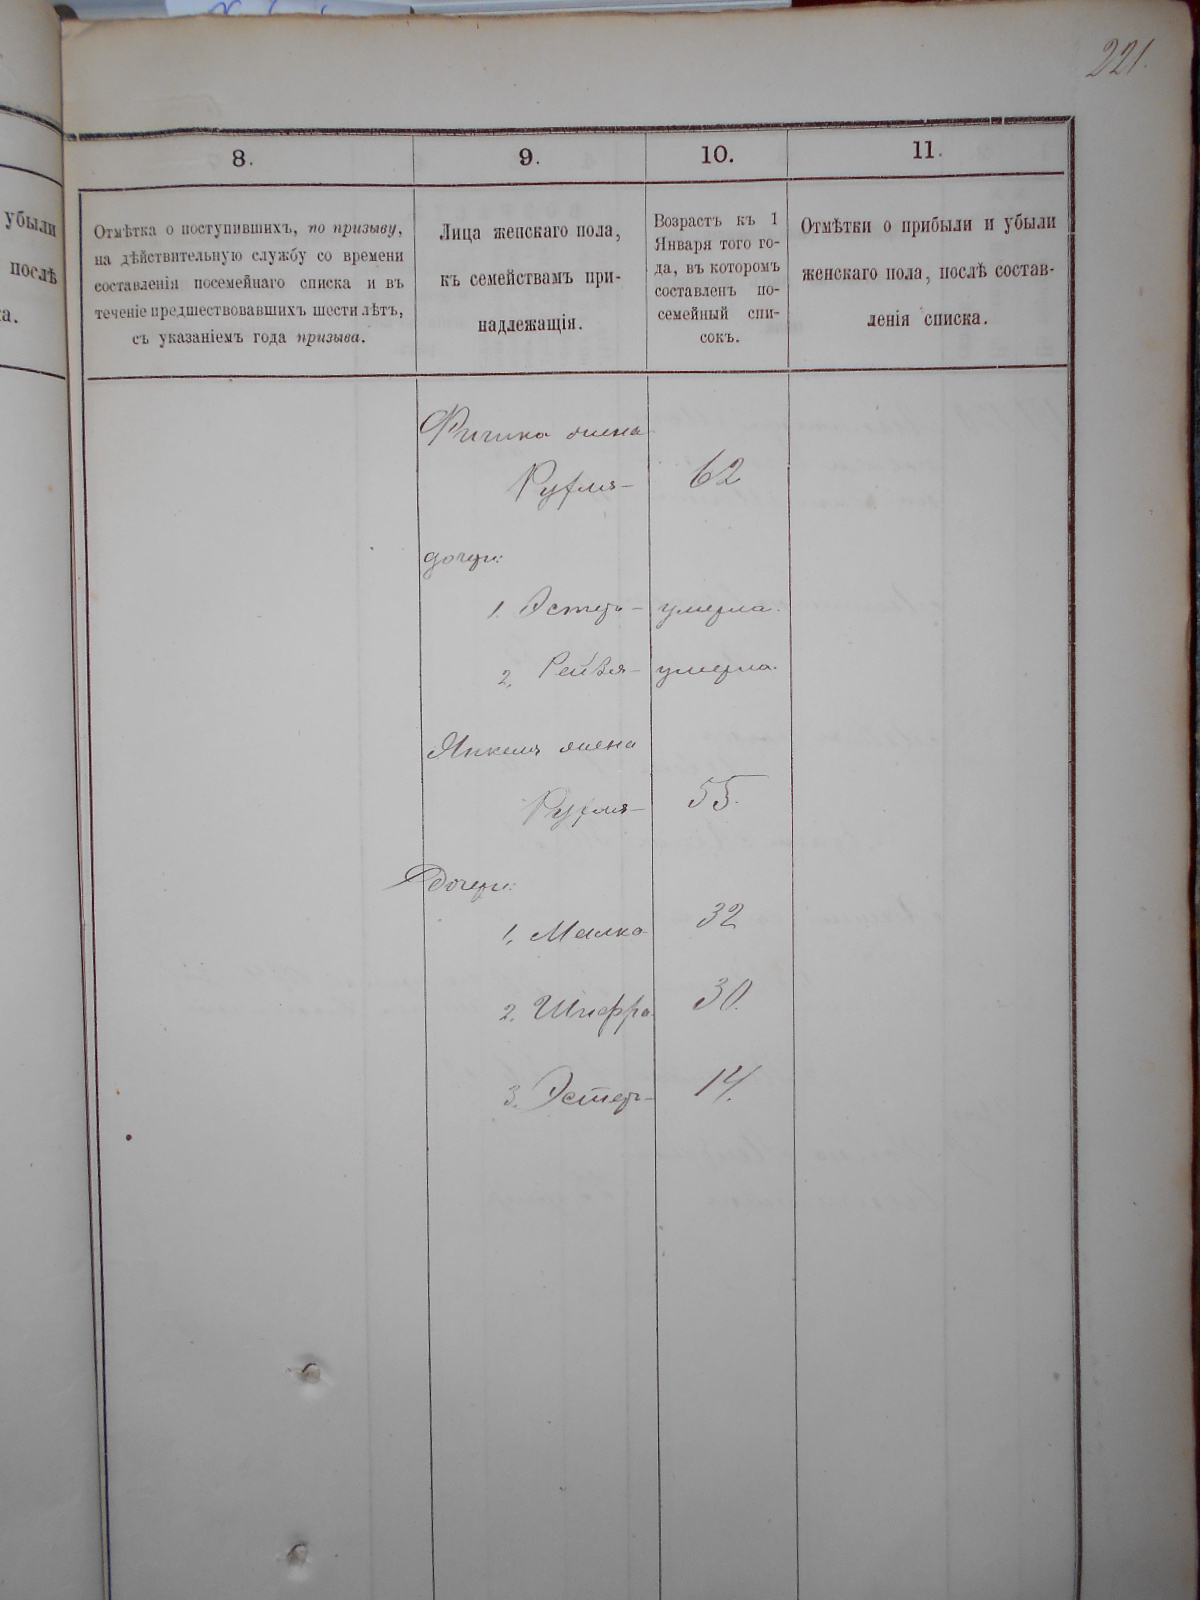 221.
убыли
послѣ
ка.
8.
9.
10.
11.
Отмѣтка о поступившихъ, по призыву,
на дѣйствительную службу со времени
составленія посемейнаго списка и въ
теченіе предшествовавшихъ шести лѣтъ,
съ указаніемъ года призыва.
Лица женскаго пола,
къ семействамъ при-
надлежащія.
Возрастъ къ 1
Января того го-
да, въ которомъ
составленъ по-
семейный спи-
сокъ.
Отмѣтки о прибыли и убыли
женскаго пола, послѣ состав-
ленія списка.
жена
Руфля- 62
дочери:
1. Эстеръ- умерла.
2. Рейзя- умерла.
Янкеля жена
Руфля- 55.
Дочери:
1. Малка 32
2. Шифра 30.
3. Эстеръ- 14.